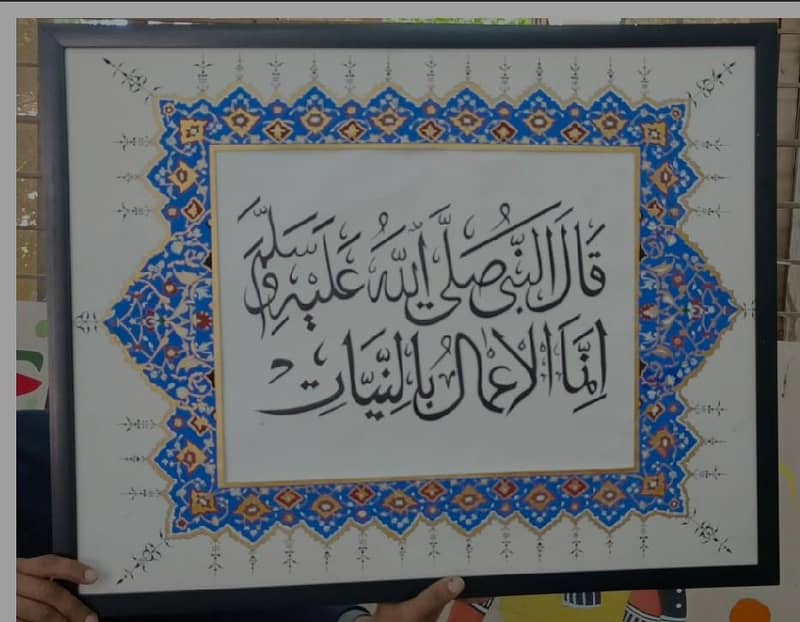 قَالَ النَّبِی صَلَّی اللّٰهُ عَلَیْهِ وَسَلَّمَ
اِنَّمَا الْاَعْمَالُ بِالنِّیَّاتِ